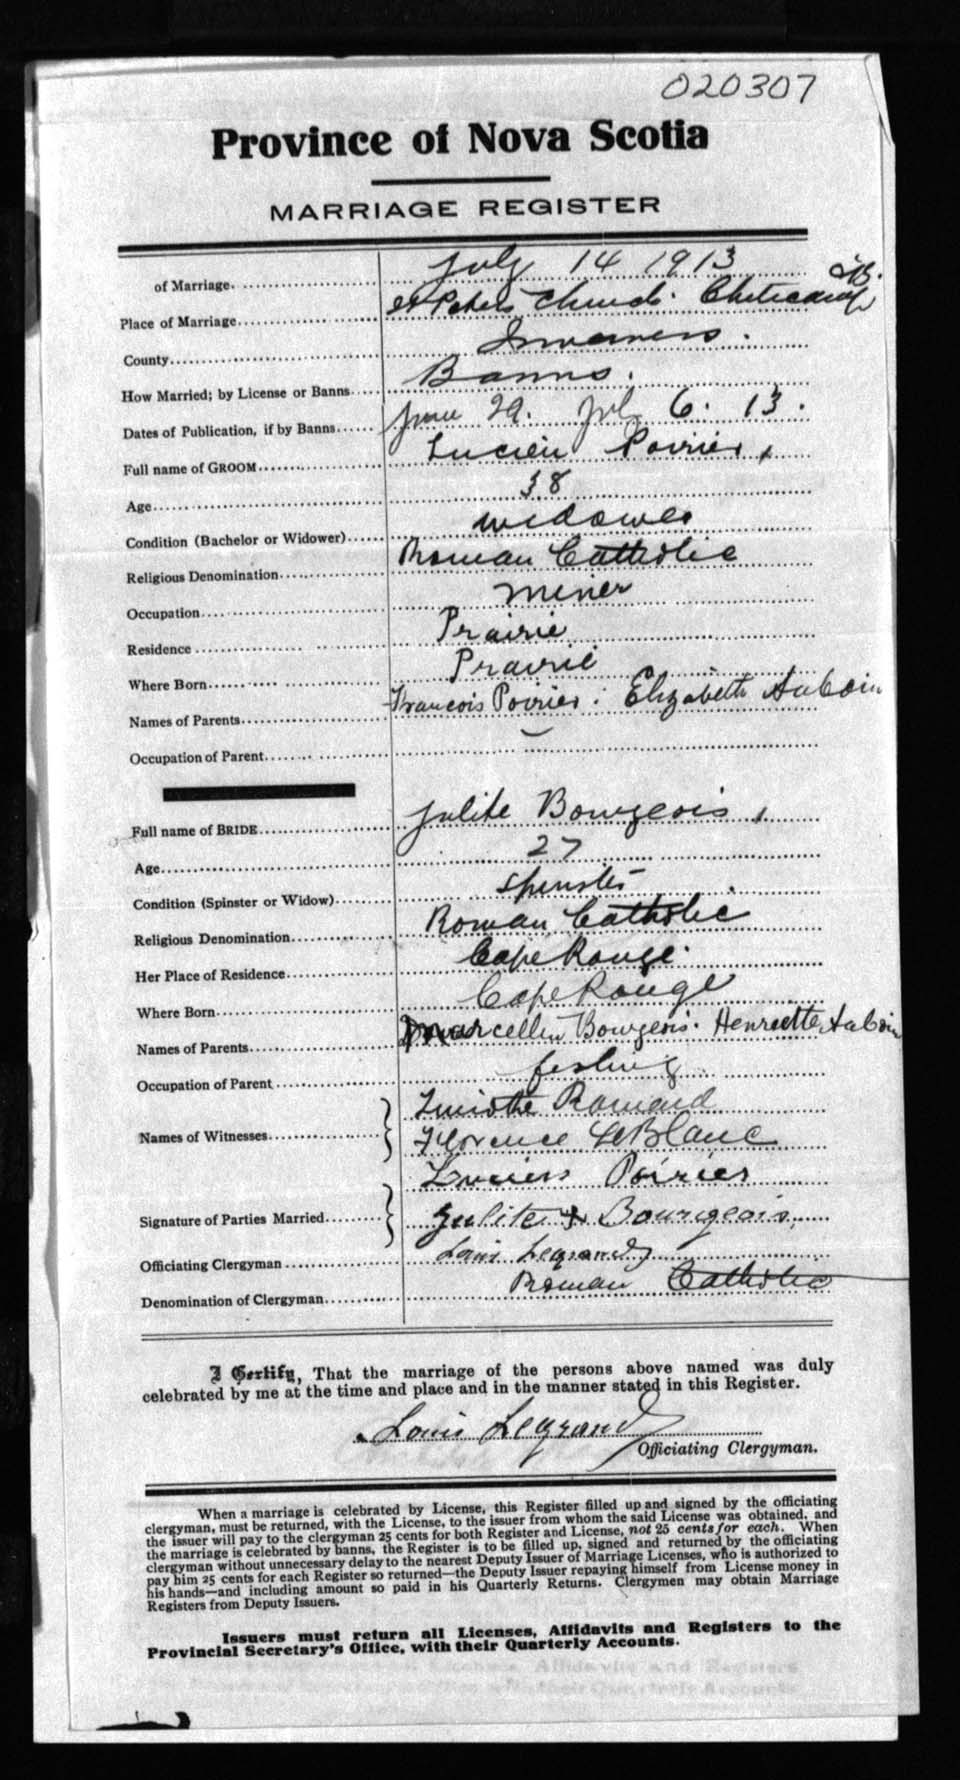 020307
Province of Nova Scotia
MARRIAGE REGISTER
of Marriage. July 14 1913
Place of Marriage St Peters Church. Cheticamp
County Inverness.
How Married; by License or Banns Banns.
Dates of Publication, if by Banns June 29. July 6. 13.
Full name of GROOM Lucien Poirier,
Age 38
Condition (Bachelor or Widower) Widower
Religious Denomination Roman Catholic
Occupation miner
Residence Prairie
Where Born Prairie
Names of Parents Francois Poirier. Elizabeth AuCoin
Occupation of Parent —
Full name of BRIDE Julite Bourgeois,
Age 27
Condition (Spinster or Widow) Spinster
Religious Denomination Roman Catholic
Her Place of Residence Cape Rouge.
Where Born Cape Rouge
Names of Parents Marcellin Bourgeois. Henriette AuCoin
Occupation of Parent fishing
Names of Witnesses
Florence LeBlanc
Lucien Poirier
Signature of Parties Married Julite + Bourgeois,
Officiating Clergyman Louis Legrand
Denomination of Clergyman Roman Catholic
I Certify, That the marriage of the persons above named was duly
celebrated by me at the time and place and in the manner stated in this Register.
Louis Legrand
Officiating Clergyman.
When a marriage is celebrated by License, this Register filled up and signed by the officiating
clergyman, must be returned, with the License, to the issuer from whom the said License was obtained, and
the issuer will pay to the clergyman 25 cents for both Register and License, not 25 cents for each. When
the marriage is celebrated by banns, the Register is to be filled up, signed and returned by the officiating
clergyman without unnecessary delay to the nearest Deputy Issuer of Marriage Licenses, who is authorized to
pay him 25 cents for each Register so returned—the Deputy Issuer repaying himself from License money in
his hands—and including amount so paid in his Quarterly Returns. Clergymen may obtain Marriage
Registers from Deputy Issuers.
Issuers must return all Licenses, Affidavits and Registers to the
Provincial Secretary's Office, with their Quarterly Accounts.